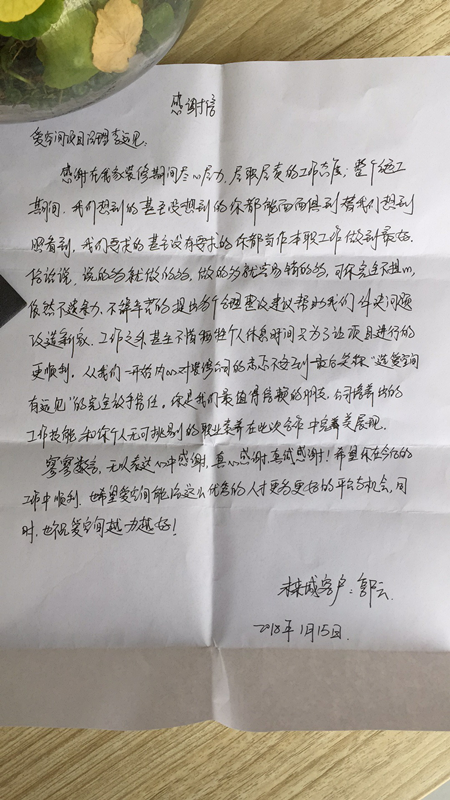 感谢信
爱空间项目经理李远见:
感谢在我家装修期间尽心尽力,尽职尽责的工作态度,整个施工
期间,我们想到的甚至没想到的你都能面面俱到替我们想到
照看到,我们要求的甚至没有要求的你都当作本职工作做到最好。
俗话说,说的好就做的好,做的好就当销的好,可你完全不提,
依然不遗余力,不辞辛苦的提出各个合理整改建议帮助我们解决问题
改造新家,工作之余甚至不惜牺牲个人休息时间只为了让项目进行的
更顺利,从我们一开始内心对装修公司的忐忑不安到最后笑称"选爱空间
有远见"的完全放手信任,你是我们最值得信赖的朋友,公司培养出的
工作技能和你个人无可挑剔的职业素养在此次合作中完美展现。
寥寥数言,无以表达心中感谢,真心感谢,真诚感谢!希望你在今后的
工作中顺利,也希望爱空间能给这么优秀的人才更多更好的平台与机会,同
时,也祝爱空间越办越好!
未来城客户:郭云
2018年1月15日.